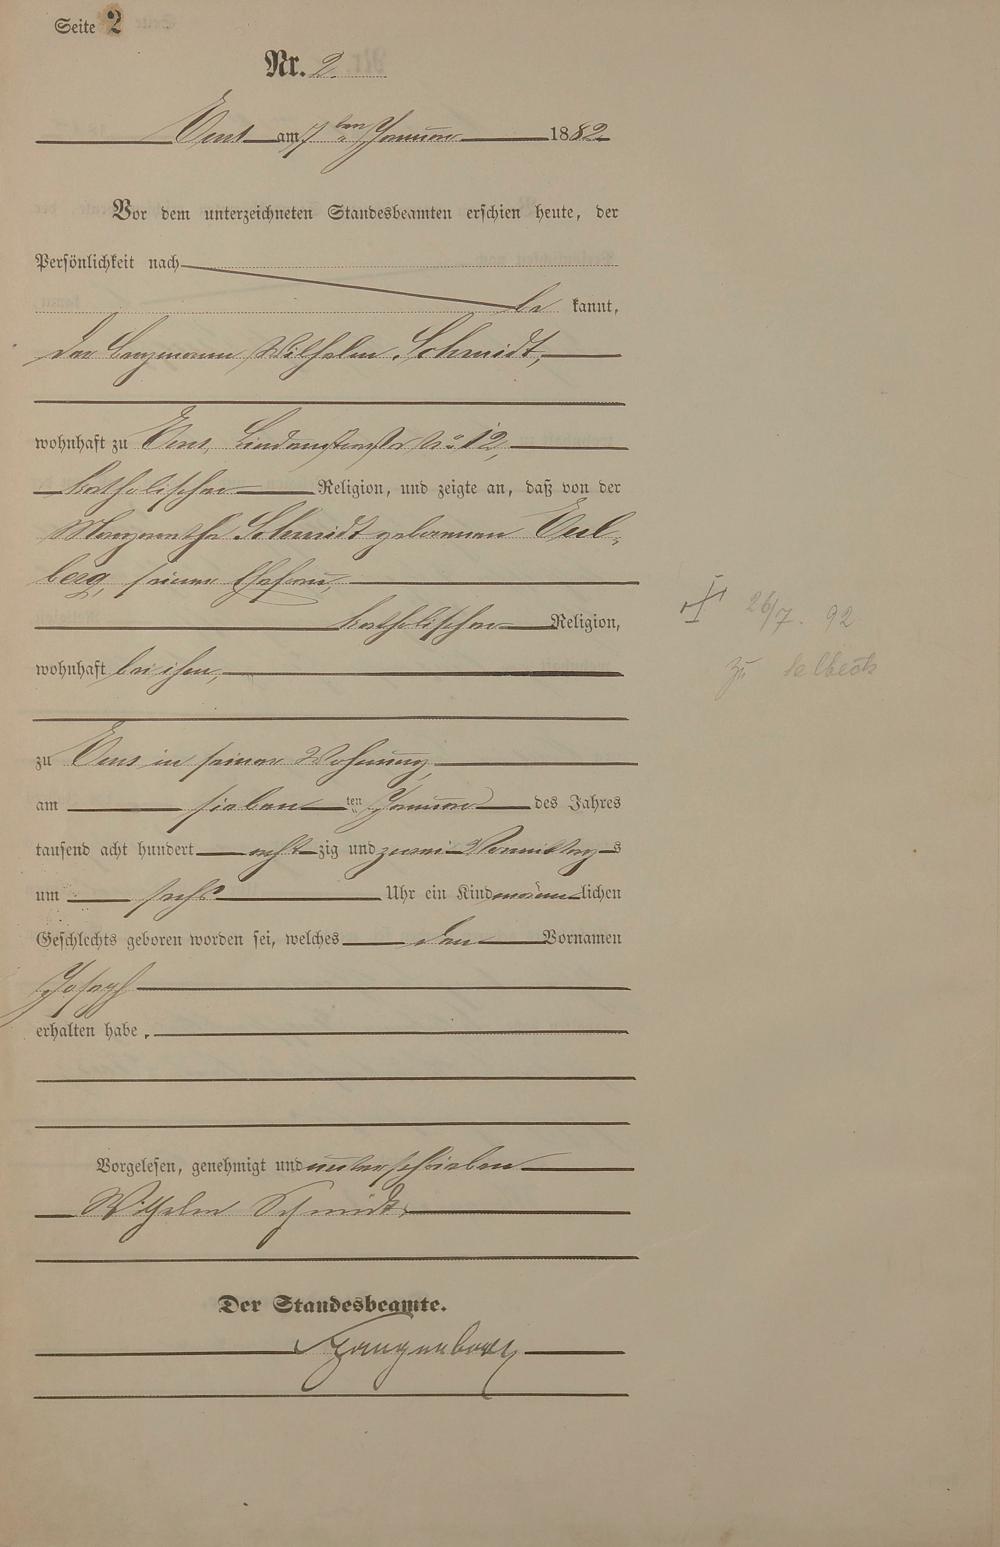 Seite 2
Nr. 2.
Ems am 7ten Januar 1882
Vor dem unterzeichneten Standesbeamten erschien heute, der
Persönlichkeit nach
be kannt,
der Bergmann Wilhelm Schmidt,
wohnhaft zu Ems, Lindenstraße No 12,
katholischer Religion, und zeigte an, daß von der
Margarethe Schmidt geborenen Eul-
berg, seiner Ehefrau,
katholischer Religion,
wohnhaft bei ihm,
zu Ems in seiner Wohnung,
am sieben ten Januar des Jahres
tausend acht hundert acht zig und zwei Vormittag s
um sechs Uhr ein Kind männ lichen
Geschlechts geboren worden sei, welches den Vornamen
Joseph
erhalten habe.
Vorgelesen, genehmigt und unterschrieben
Wilhelm Schmidt.
Der Standesbeamte.
26/7. 92
zu Selbeck